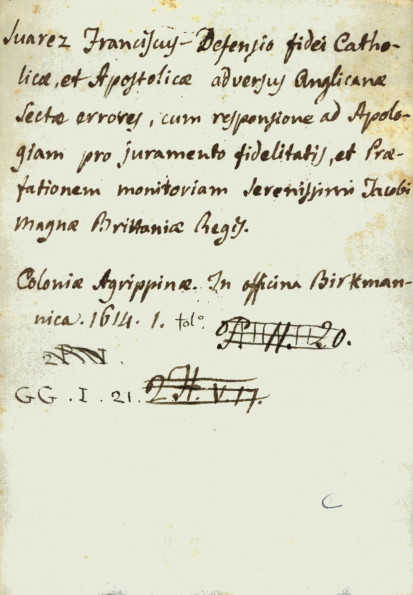 Suarez Franciscus - Defensio fidei Catho-
licæ, et Apostolicæ adversus Anglicanæ
Sectæ errores, cum responsione ad Apolo-
giam pro juramento fidelitatis, et Præ-
fationem monitoriam Serenissimi Jacobi
Magnæ Brittaniæ Regis.
Coloniæ Agrippinæ. In officina Birkman-
nica. 1614. 1. fol.º
20.
GG. I. 21. 2 H. V. 17.
C